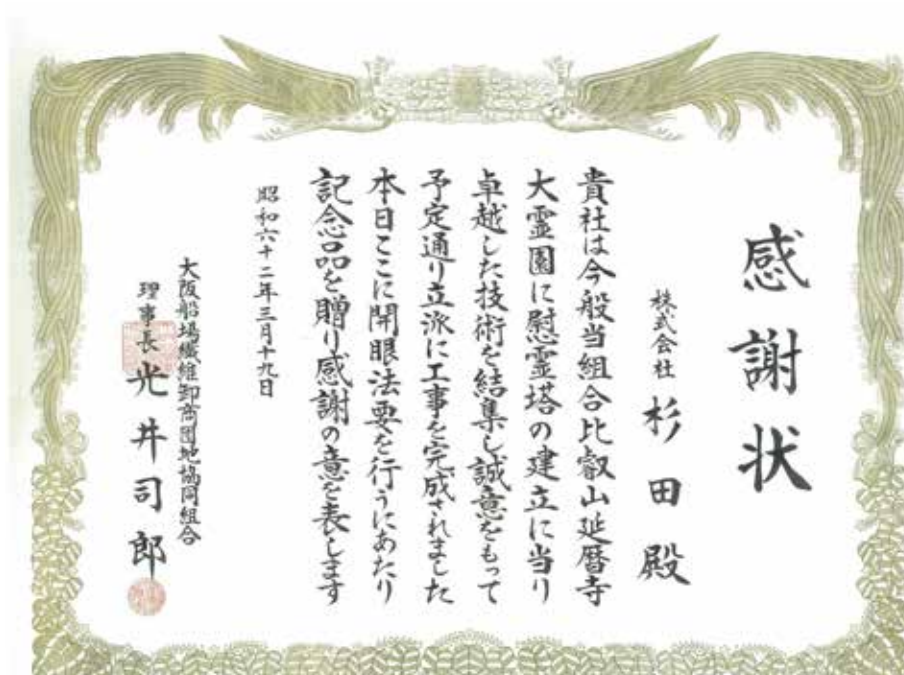 感謝状
株式会社 杉田殿
貴社は今般当組合比叡山延暦寺
大霊園に慰霊塔の建立に当り
卓越した技術を結集し誠意をもって
予定通り立派に工事を完成されました
本日ここに開眼法要を行うにあたり
記念品を贈り感謝の意を表します
昭和六十二年三月十九日
大阪船場繊維卸商団地協同組合
理事長 光井司郎